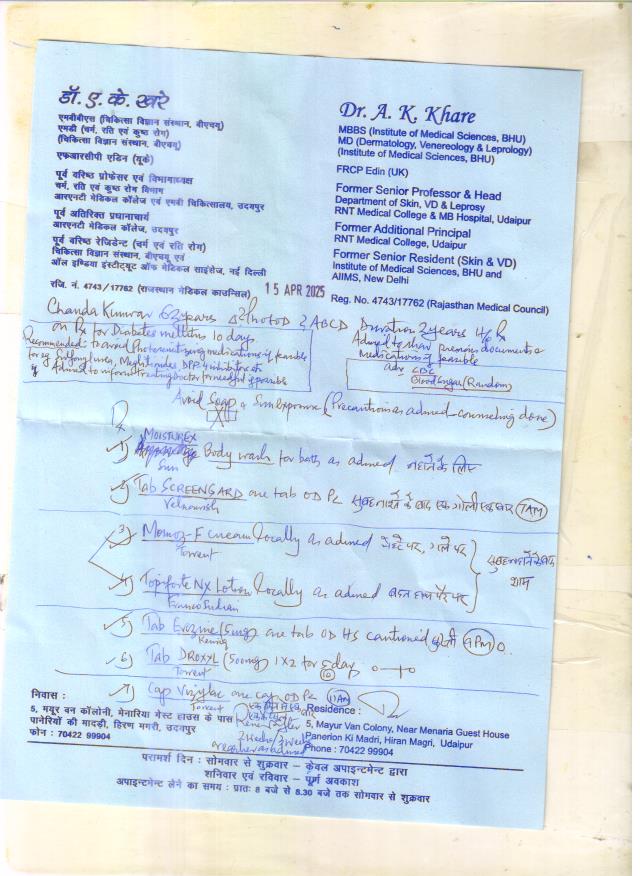 डॉ. ए. के. खरे
एमबीबीएस (चिकित्सा विज्ञान संस्थान, बीएचयू)
एमडी (चर्म, रति एवं कुष्ठ रोग)
(चिकित्सा विज्ञान संस्थान, बीएचयू)
एफआरसीपी एडिन (यूके)
पूर्व वरिष्ठ प्रोफेसर एवं विभागाध्यक्ष
चर्म, रति एवं कुष्ठ रोग विभाग
आरएनटी मेडिकल कॉलेज एवं एमबी चिकित्सालय, उदयपुर
पूर्व अतिरिक्त प्रधानाचार्य
आरएनटी मेडिकल कॉलेज, उदयपुर
पूर्व वरिष्ठ रेजिडेन्ट (चर्म एवं रति रोग)
चिकित्सा विज्ञान संस्थान, बीएचयू एवं
ऑल इण्डिया इंस्टीट्यूट ऑफ मेडिकल साइंसेज, नई दिल्ली
रजि. नं. 4743/17762 (राजस्थान मेडिकल काउन्सिल)
Dr. A. K. Khare
MBBS (Institute of Medical Sciences, BHU)
MD (Dermatology, Venereology & Leprology)
(Institute of Medical Sciences, BHU)
FRCP Edin (UK)
Former Senior Professor & Head
Department of Skin, VD & Leprosy
RNT Medical College & MB Hospital, Udaipur
Former Additional Principal
RNT Medical College, Udaipur
Former Senior Resident (Skin & VD)
Institute of Medical Sciences, BHU and
AIIMS, New Delhi
15 APR 2025
Reg. No. 4743/17762 (Rajasthan Medical Council)
Chanda Kunwar 62 years PhotoD ABCD Duration 2 years
on Rx for Diabetes mellitus 10 days
Recommended to avoid Photosensitizing medications if feasible
Advised to inform treating doctor for needful if possible
Advised to show previous documents &
Medications if feasible
Adv CBC
Blood Sugar (Random)
Avoid Soap & Sun Exposure (Precaution as advised - counseling done)
Rx
1) MOISTUREX Body wash for bath as advised नहाने के लिए
Sun
2) Tab SCREENGARD one tab OD PC सुबह नाश्ते के बाद एक गोली एक बार 7AM
3) Momoz-F cream locally as advised चेहरे पर, गले पर
Torrent
4) Topiforte NX Lotion locally as advised हाथ पैर पर
Franco Indian
शाम
5) Tab (5mg) one tab OD HS cautioned 9PM
6) Tab DROXYL (500mg) 1x2 for 5 day
Torrent
10
7) Cap one cap OD PC 11AM
Torrent
2 weeks/3 weeks
निवास :
5, मयूर वन कॉलोनी, मेनारिया गेस्ट हाउस के पास
पानेरियों की मादड़ी, हिरण मगरी, उदयपुर
फोन : 70422 99904
Residence :
5, Mayur Van Colony, Near Menaria Guest House
Panerion Ki Madri, Hiran Magri, Udaipur
Phone : 70422 99904
परामर्श दिन : सोमवार से शुक्रवार – केवल अपाइन्टमेन्ट द्वारा
शनिवार एवं रविवार – पूर्ण अवकाश
अपाइन्टमेन्ट लेने का समय : प्रातः 8 बजे से 8.30 बजे तक सोमवार से शुक्रवार